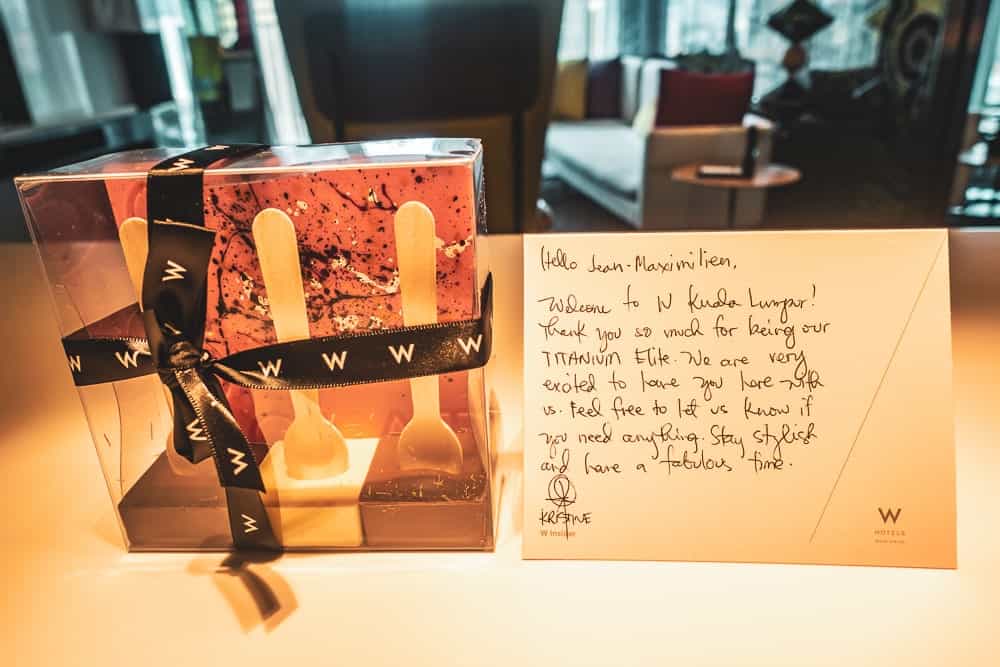 W
W
W W W W W
W
W
W
Hello Jean-Maximilien,
Welcome to W Kuala Lumpur!
Thank you so much for being our
TITANIUM Elite. We are very
excited to have you here with
us. Feel free to let us know if
you need anything. Stay stylish
and have a fabulous time.
KRISTINE
W Insider
W
HOTELS
WORLDWIDE